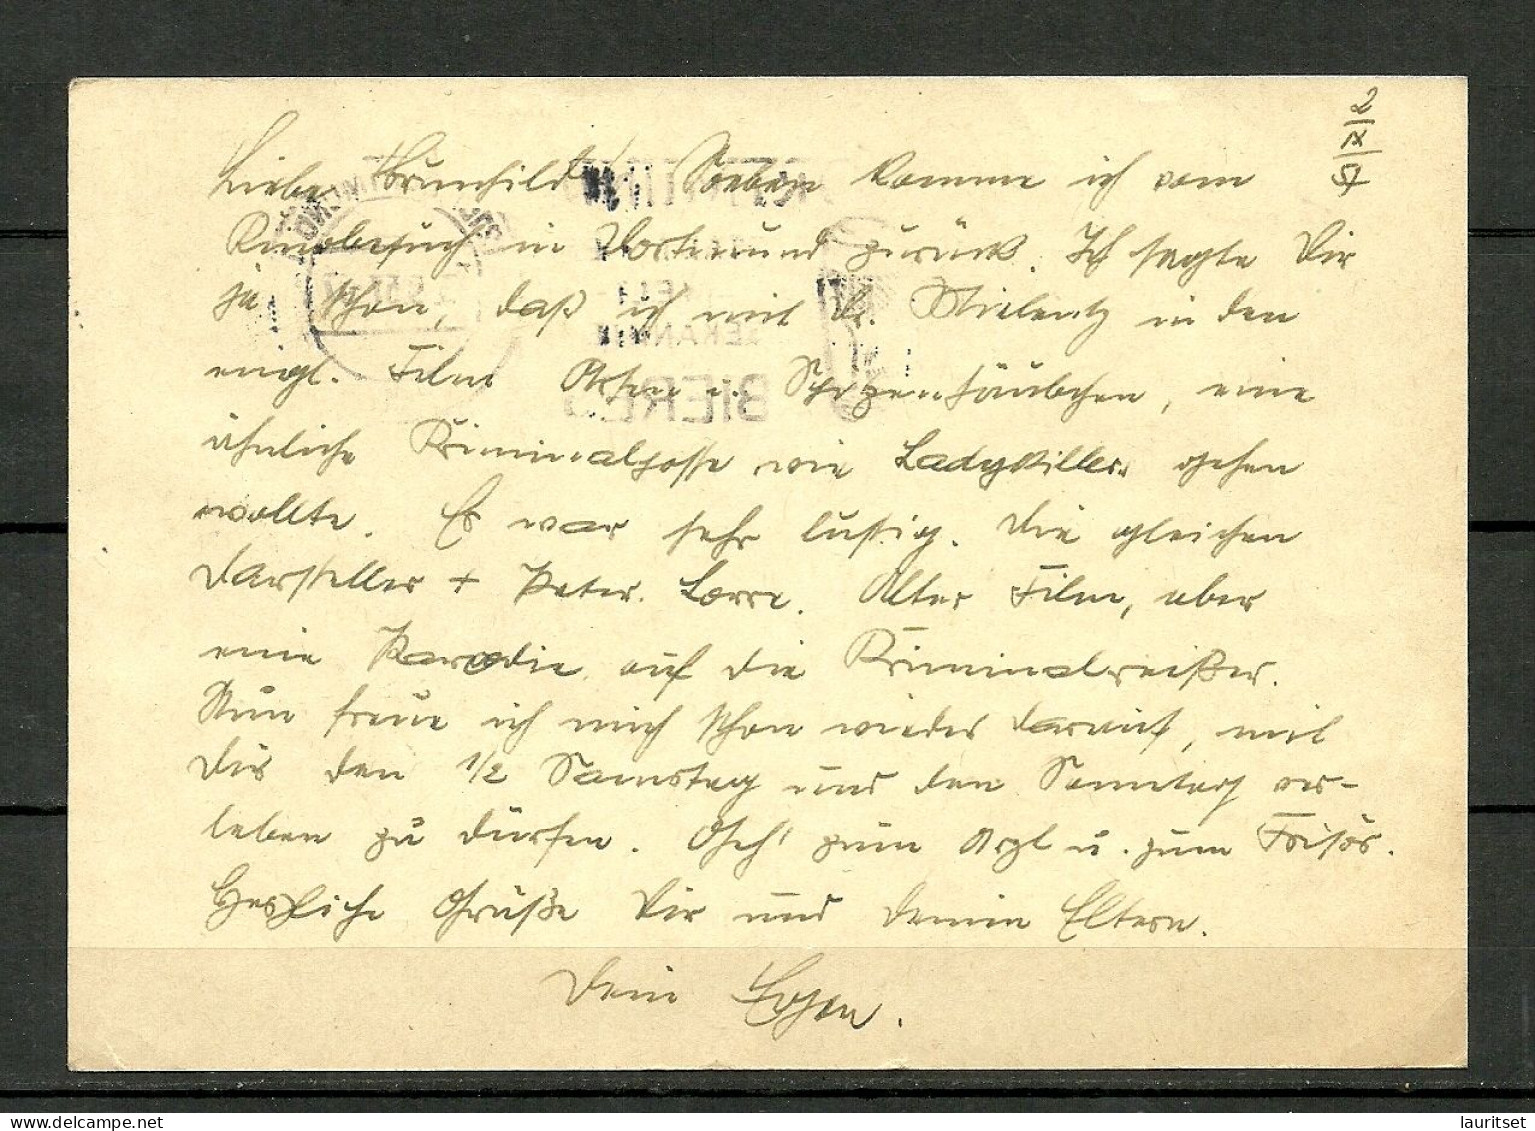 2/IX/57
Liebe Brunhild! Soeben komme ich vom
Kinobesuch in Dortmund zurück. Ich sagte Dir
ja schon, daß ich mit Dr. in den
engl. Film Arsen u. Spitzenhäubchen, eine
ähnliche Kriminalposse wie Ladykillers gehen
wollte. Es war sehr lustig. Die gleichen
Darsteller + Peter Lorre. Alter Film, aber
eine Parodie auf die Kriminalreißer.
Nun freue ich mich schon wieder darauf, mit
Dir den 1/2 Samstag und den Sonntag ver-
leben zu dürfen. Geh' zum Arzt u. zum Frisör.
Herzliche Grüße Dir und deinen Eltern.
Dein
BIERE
lauritset